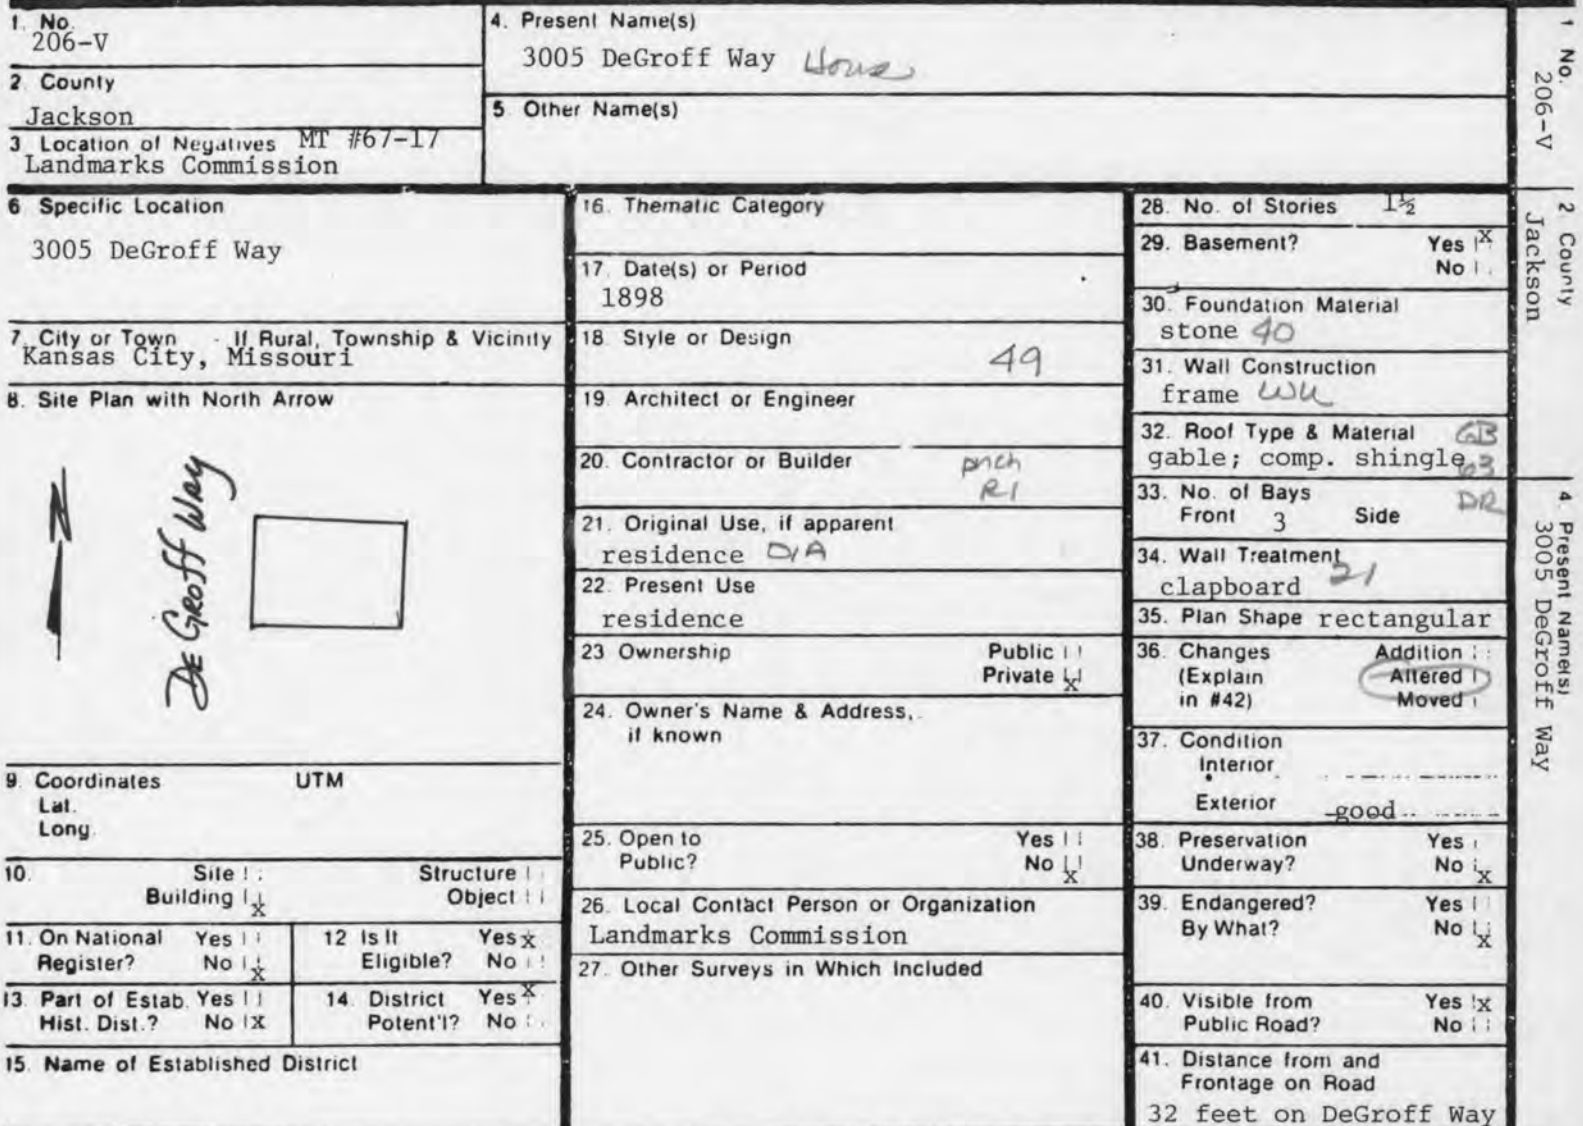 1. No.
206-V
2 County
Jackson
3 Location of Negatives MT #67-17
Landmarks Commission
4. Present Name(s)
3005 DeGroff Way House
5 Other Name(s)
6 Specific Location
3005 DeGroff Way
7. City or Town If Rural, Township & Vicinity
Kansas City, Missouri
8. Site Plan with North Arrow
N
DE GROFF WAY
9. Coordinates UTM
Lat.
Long.
10. Site Structure
Building X Object
11. On National Yes
Register? No X
12 Is It Yes X
Eligible? No
13. Part of Estab. Yes
Hist. Dist.? No X
14. District Yes X
Potent'l? No
15. Name of Established District
16. Thematic Category
17. Date(s) or Period
1898
18. Style or Design
49
19. Architect or Engineer
20. Contractor or Builder
prch
R1
21. Original Use, if apparent
residence 01A
22. Present Use
residence
23 Ownership Public
Private X
24. Owner's Name & Address,
if known
25. Open to Yes
Public? No X
26. Local Contact Person or Organization
Landmarks Commission
27. Other Surveys in Which Included
28. No. of Stories 1½
29. Basement? Yes X
No
30. Foundation Material
stone 40
31. Wall Construction
frame
32. Roof Type & Material GB
gable; comp. shingle 63
33. No. of Bays DR
Front 3 Side
34. Wall Treatment
clapboard 21
35. Plan Shape rectangular
36. Changes Addition
(Explain Altered
in #42) Moved
37. Condition
Interior
Exterior good
38. Preservation Yes
Underway? No X
39. Endangered? Yes
By What? No X
40. Visible from Yes X
Public Road? No
41. Distance from and
Frontage on Road
32 feet on DeGroff Way
1 No.
206-V
2 County
Jackson
4 Present Name(s)
3005 DeGroff Way